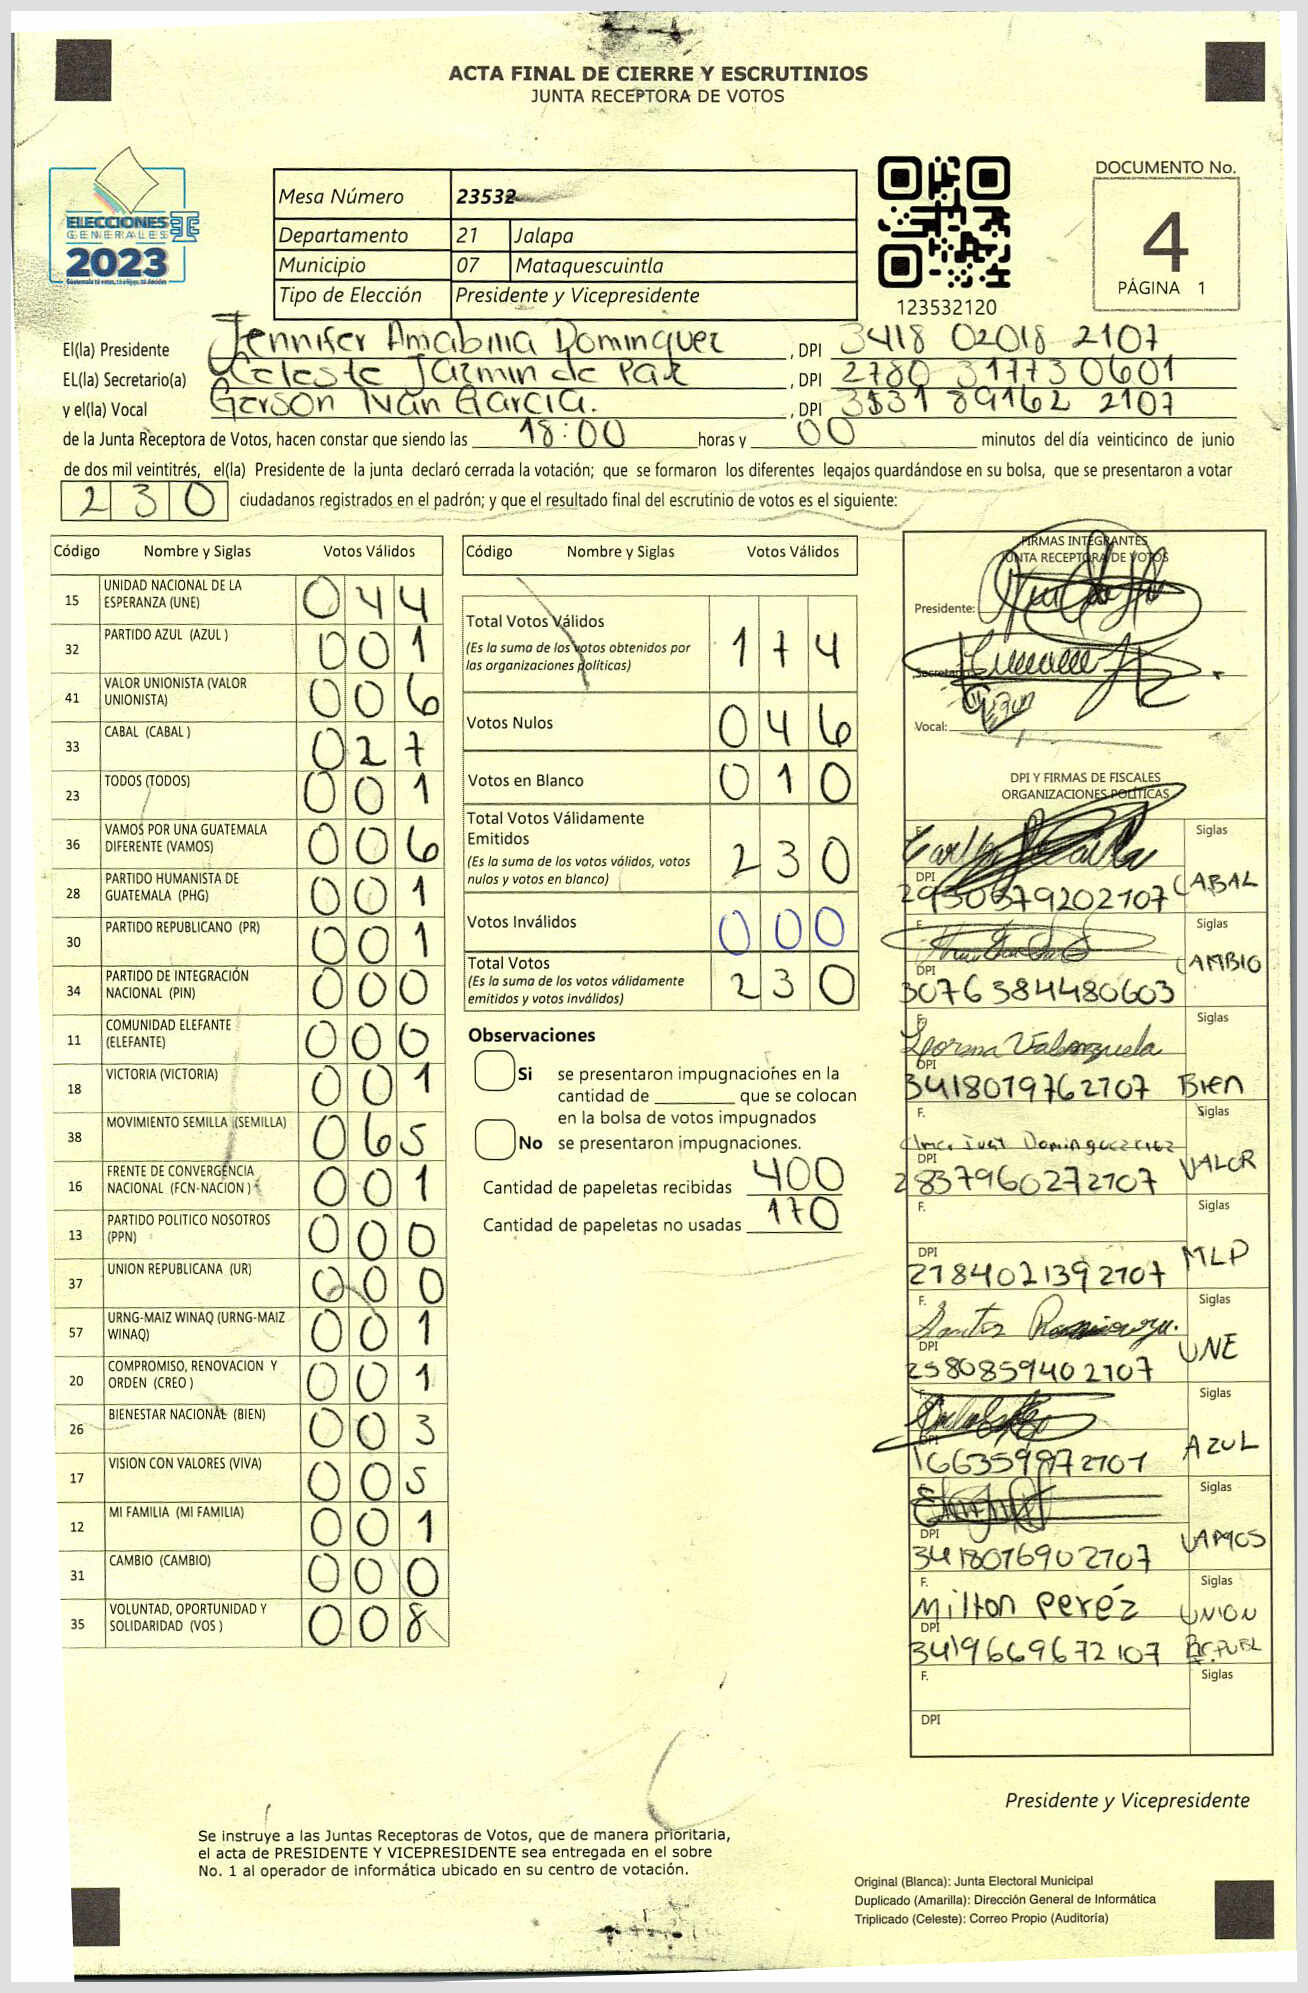 ACTA FINAL DE CIERRE Y ESCRUTINIOS
JUNTA RECEPTORA DE VOTOS
ELECCIONES
GENERALES
2023
Mesa Número 23532
Departamento 21 Jalapa
Municipio 07 Mataquescuintla
Tipo de Elección Presidente y Vicepresidente
123532120
DOCUMENTO No.
4
PÁGINA 1
El(la) Presidente Jennifer Amabilia Dominguez , DPI 3418 02018 2107
EL(la) Secretario(a) Celeste Jazmin de Paz , DPI 2780 317730601
y el(la) Vocal Gerson Ivan Garcia. , DPI 3531 89162 2107
de la Junta Receptora de Votos, hacen constar que siendo las 18:00 horas y 00 minutos del día veinticinco de junio
de dos mil veintitrés, el(la) Presidente de la junta declaró cerrada la votación; que se formaron los diferentes legajos guardándose en su bolsa, que se presentaron a votar
230 ciudadanos registrados en el padrón; y que el resultado final del escrutinio de votos es el siguiente:
Código Nombre y Siglas Votos Válidos
15 UNIDAD NACIONAL DE LA ESPERANZA (UNE) 044
32 PARTIDO AZUL (AZUL ) 001
41 VALOR UNIONISTA (VALOR UNIONISTA) 006
33 CABAL (CABAL ) 027
23 TODOS (TODOS) 001
36 VAMOS POR UNA GUATEMALA DIFERENTE (VAMOS) 006
28 PARTIDO HUMANISTA DE GUATEMALA (PHG) 001
30 PARTIDO REPUBLICANO (PR) 001
34 PARTIDO DE INTEGRACIÓN NACIONAL (PIN) 000
11 COMUNIDAD ELEFANTE (ELEFANTE) 000
18 VICTORIA (VICTORIA) 001
38 MOVIMIENTO SEMILLA (SEMILLA) 065
16 FRENTE DE CONVERGENCIA NACIONAL (FCN-NACION ) 001
13 PARTIDO POLITICO NOSOTROS (PPN) 000
37 UNION REPUBLICANA (UR) 000
57 URNG-MAIZ WINAQ (URNG-MAIZ WINAQ) 001
20 COMPROMISO, RENOVACION Y ORDEN (CREO ) 001
26 BIENESTAR NACIONAL (BIEN) 003
17 VISION CON VALORES (VIVA) 005
12 MI FAMILIA (MI FAMILIA) 001
31 CAMBIO (CAMBIO) 000
35 VOLUNTAD, OPORTUNIDAD Y SOLIDARIDAD (VOS ) 008
Código Nombre y Siglas Votos Válidos
Total Votos Válidos 174
(Es la suma de los votos obtenidos por
las organizaciones políticas)
Votos Nulos 046
Votos en Blanco 010
Total Votos Válidamente
Emitidos 230
(Es la suma de los votos válidos, votos
nulos y votos en blanco)
Votos Inválidos 000
Total Votos 230
(Es la suma de los votos válidamente
emitidos y votos inválidos)
Observaciones
Si se presentaron impugnaciones en la
cantidad de ________ que se colocan
en la bolsa de votos impugnados
No se presentaron impugnaciones.
Cantidad de papeletas recibidas 400
Cantidad de papeletas no usadas 170
FIRMAS INTEGRANTES
JUNTA RECEPTORA DE VOTOS
Presidente:
Secretario:
Vocal:
DPI Y FIRMAS DE FISCALES
ORGANIZACIONES POLÍTICAS
F. Siglas
DPI 2930679202107 CABAL
F. Siglas
DPI 3076384480603 CAMBIO
F. Lorena Valenzuela Siglas
DPI 3418019762107 Bien
F. Siglas
DPI 2837960272107 VALOR
F. Siglas
DPI 2784021392107 MLP
F. Siglas
DPI 2580859402107 UNE
F. Siglas
DPI AZUL
F. Siglas
DPI 3418016902107 VAMOS
F. Milton Peréz Siglas
DPI 3419669672107 UNION REPUBL
F. Siglas
DPI
Presidente y Vicepresidente
Se instruye a las Juntas Receptoras de Votos, que de manera prioritaria,
el acta de PRESIDENTE Y VICEPRESIDENTE sea entregada en el sobre
No. 1 al operador de informática ubicado en su centro de votación.
Original (Blanca): Junta Electoral Municipal
Duplicado (Amarilla): Dirección General de Informática
Triplicado (Celeste): Correo Propio (Auditoría)